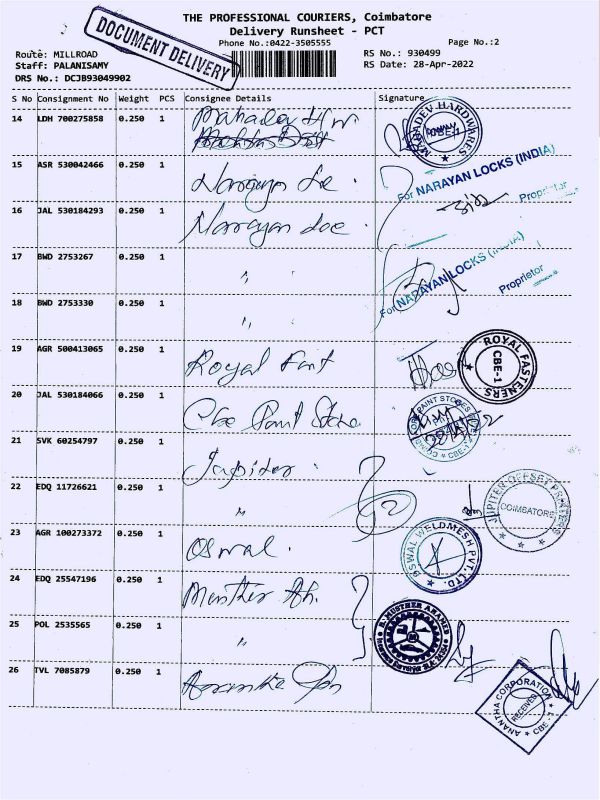 THE PROFESSIONAL COURIERS, Coimbatore
Delivery Runsheet - PCT
DOCUMENT DELIVERY
Phone No.:0422-3505555
Page No.:2
Route: MILLROAD
RS No.: 930499
Staff: PALANISAMY
RS Date: 28-Apr-2022
DRS No.: DCJB93049902
S No Consignment No Weight PCS Consignee Details Signature
14 LDH 700275858 0.250 1 Mahadev H/w.
MAHADEV HARDWARES CBE-1
15 ASR 530042466 0.250 1 Narayan Loc.
For NARAYAN LOCKS (INDIA)
Proprietor
16 JAL 530184293 0.250 1 Narayan Loc.
17 BWD 2753267 0.250 1 "
For NARAYAN LOCKS (INDIA)
Proprietor
18 BWD 2753330 0.250 1 "
19 AGR 500413065 0.250 1 Royal Fast
ROYAL FASTENERS CBE-1
20 JAL 530184066 0.250 1 Cbe Paint Store
PAINT STORES CBE-1
21 SVK 60254797 0.250 1 Jupiter.
22 EDQ 11726621 0.250 1 "
JUPITER OFFSET PRINTERS COIMBATORE
23 AGR 100273372 0.250 1 Oswal.
OSWAL WELDMESH PVT. LTD.
24 EDQ 25547196 0.250 1 Musther Ah.
MUSTHER AHAMED
25 POL 2535565 0.250 1 "
26 TVL 7085879 0.250 1 Anantha
ANANTHA CORPORATION RECEIVED CBE